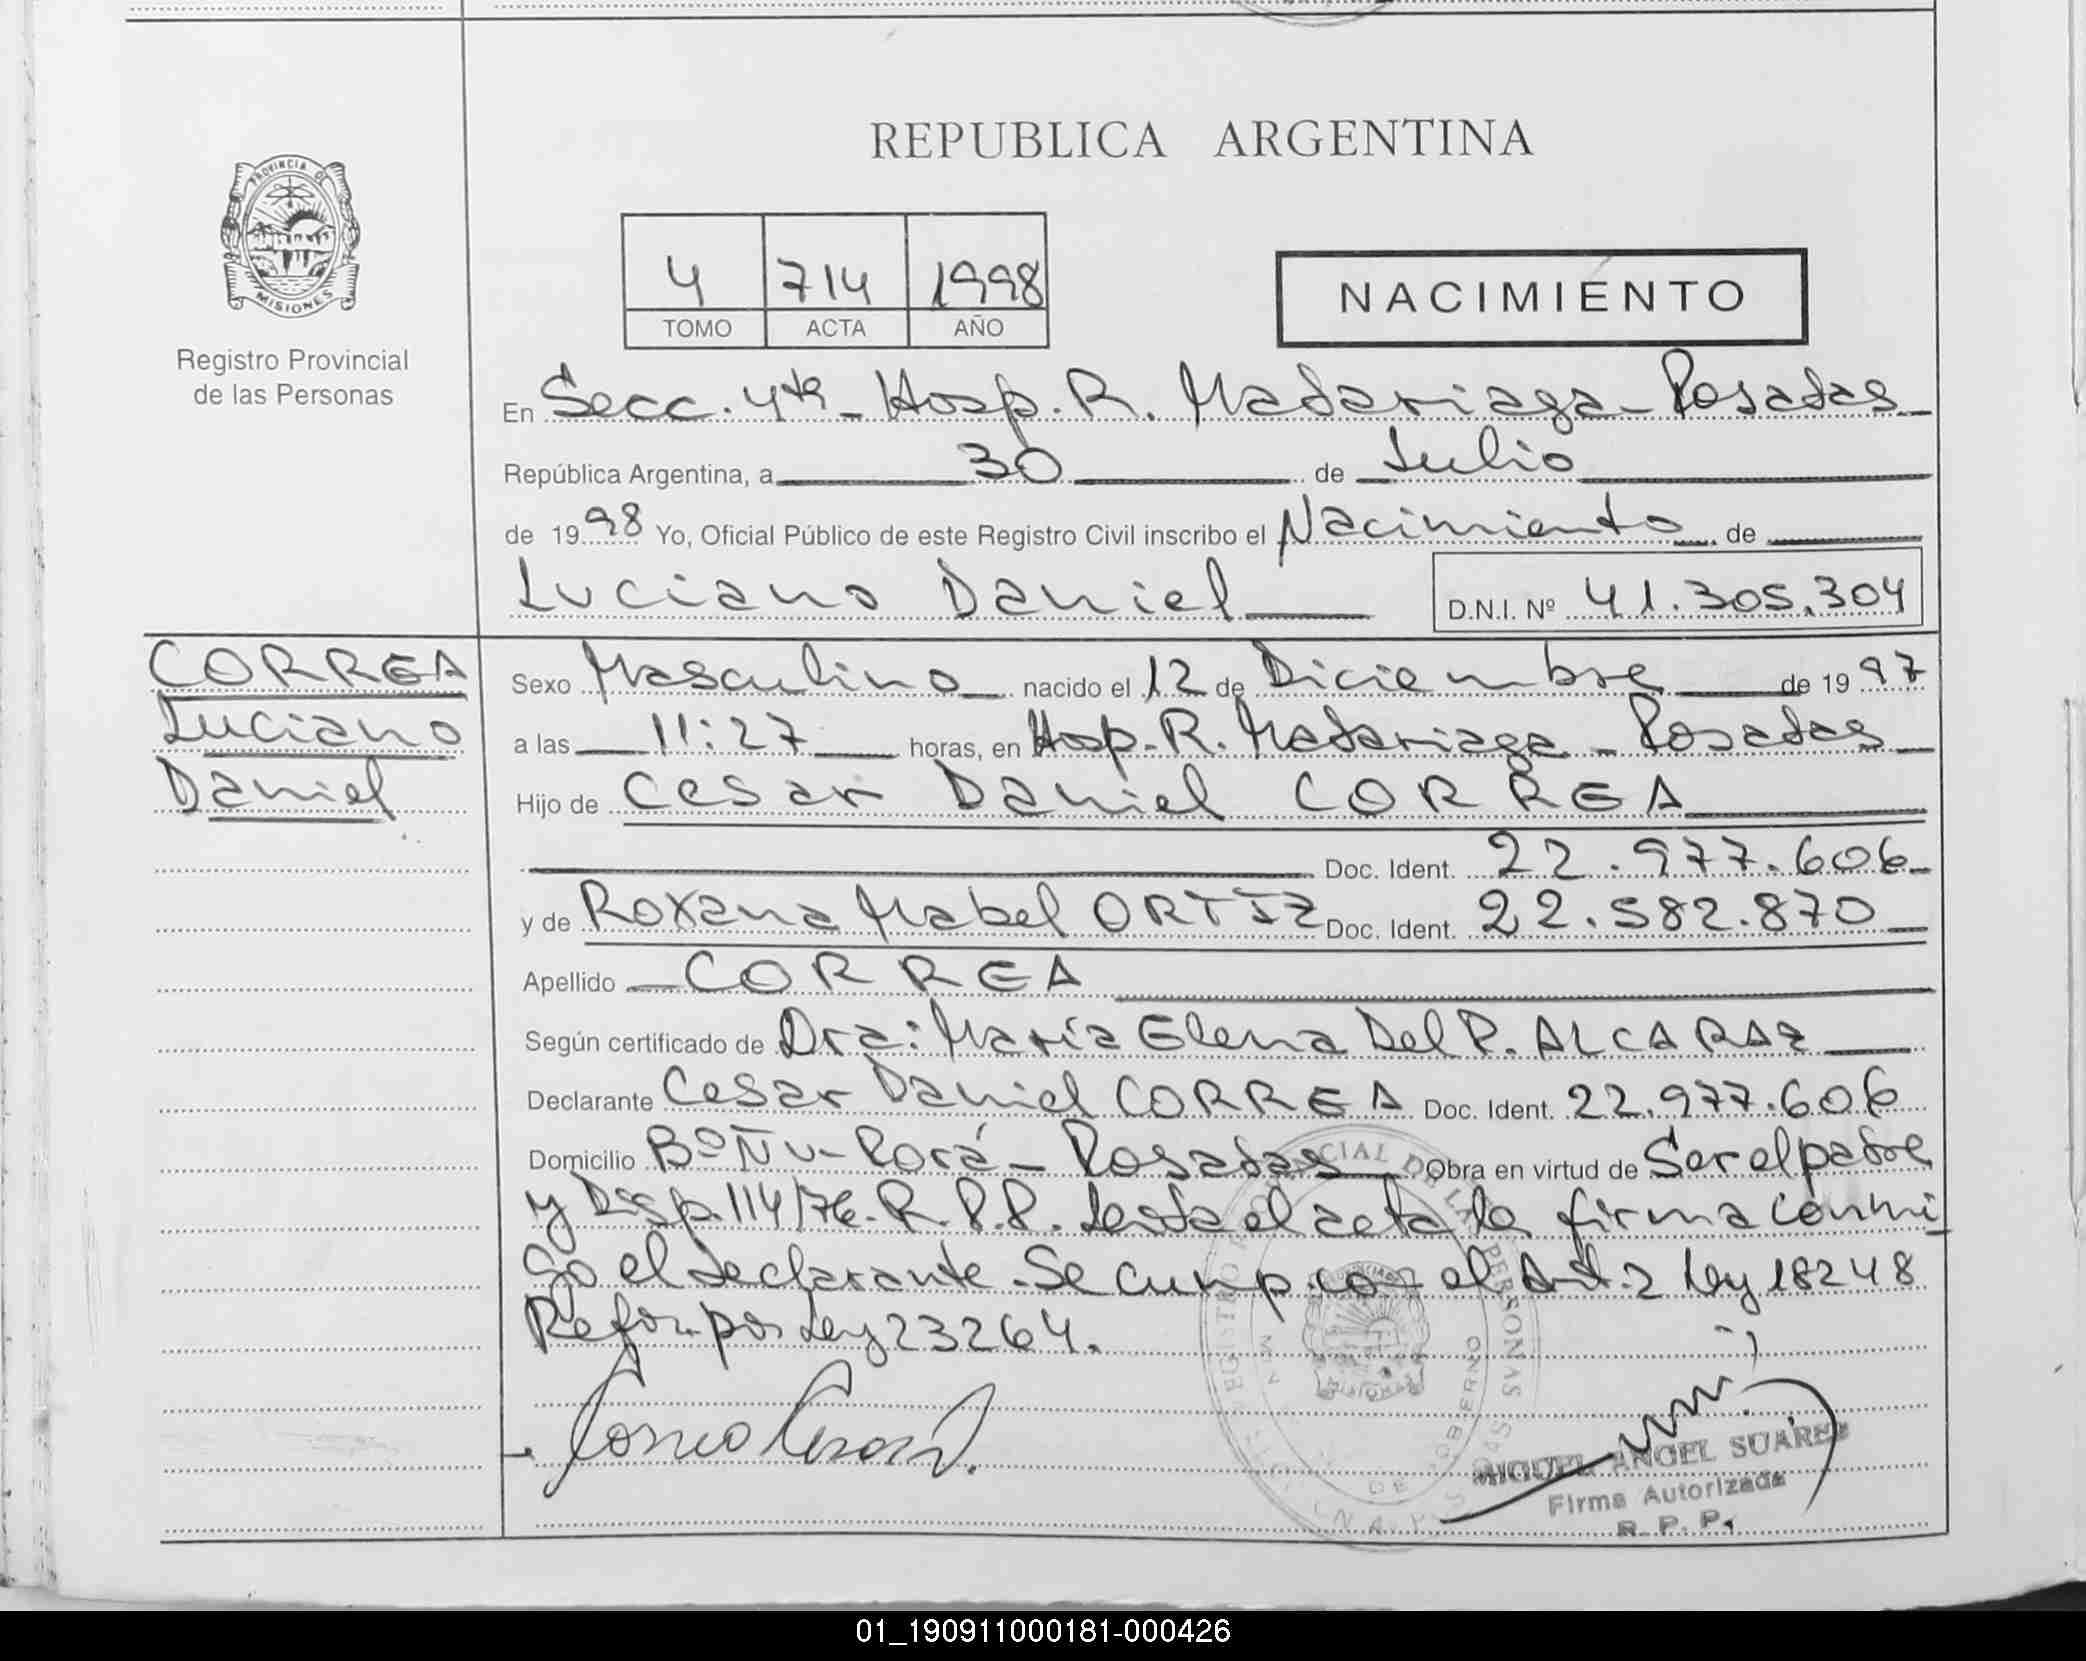 REPUBLICA ARGENTINA
PROVINCIA DE
MISIONES
Registro Provincial
de las Personas
4 714 1998
TOMO ACTA AÑO
NACIMIENTO
En Secc. 4ta - Hosp. R. Madariaga - Posadas
República Argentina, a 30 de Julio
de 1998 Yo, Oficial Público de este Registro Civil inscribo el Nacimiento de
Luciano Daniel D.N.I. Nº 41.305.304
CORREA
Luciano
Daniel
Sexo Masculino nacido el 12 de Diciembre de 1997
a las 11:27 horas, en Hosp. R. Madariaga - Posadas
Hijo de Cesar Daniel CORREA
Doc. Ident. 22.977.606
y de Roxana Mabel ORTIZ Doc. Ident. 22.582.870
Apellido CORREA
Según certificado de Dra: María Elena Del P. ALCARAZ
Declarante Cesar Daniel CORREA Doc. Ident. 22.977.606
Domicilio Bº Ñu-Porá - Posadas Obra en virtud de Ser el padre
y Disp. 114/76. R.P.P. el acta la firma conmi
go el declarante. Se cump. con el Art. 2 Ley 18248
Refor. por Ley 23264.
MIGUEL ANGEL SUAREZ
Firma Autorizada
R. P. P.
01_190911000181-000426